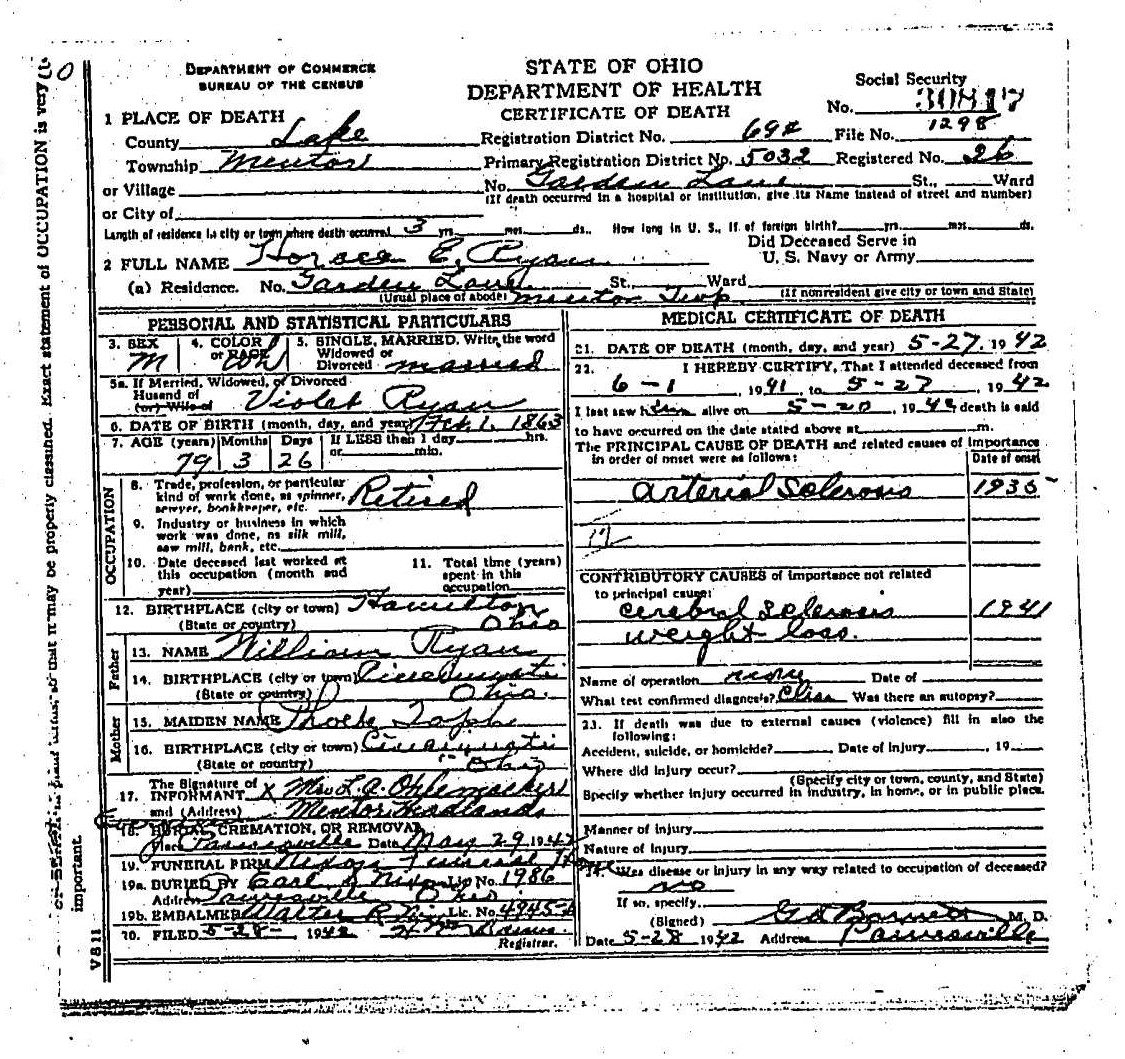 DEPARTMENT OF COMMERCE
BUREAU OF THE CENSUS
STATE OF OHIO
DEPARTMENT OF HEALTH
CERTIFICATE OF DEATH
Social Security
No.
1 PLACE OF DEATH
County Lake
Registration District No. 692 File No. 1298
Township Mentor
Primary Registration District No. 5032 Registered No. 26
or Village
No. Garden Lane St., Ward
(If death occurred in a hospital or institution, give its Name instead of street and number)
or City of
Length of residence in city or town where death occurred 3 yrs. mos. ds. How long in U. S., if of foreign birth? yrs. mos. ds.
2 FULL NAME Horace E. Ryan
Did Deceased Serve in
U. S. Navy or Army
(a) Residence. No. Garden Lane St., Ward
(Usual place of abode) Mentor Twp (If nonresident give city or town and State)
PERSONAL AND STATISTICAL PARTICULARS
3. SEX M
4. COLOR or RACE Wh
5. SINGLE, MARRIED, Write the word
Widowed or
Divorced married
5a. If Married, Widowed, or Divorced
Husband of
(or) Wife of Violet Ryan
6. DATE OF BIRTH (month, day, and year) Feb. 1. 1863
7. AGE (years) Months Days If LESS than 1 day hrs.
or min.
79 3 26
OCCUPATION
8. Trade, profession, or particular
kind of work done, as spinner,
sawyer, bookkeeper, etc. Retired
9. Industry or business in which
work was done, as silk mill,
saw mill, bank, etc.
10. Date deceased last worked at
this occupation (month and
year)
11. Total time (years)
spent in this
occupation
12. BIRTHPLACE (city or town) Hamilton
(State or country) Ohio
Father
13. NAME William Ryan
14. BIRTHPLACE (city or town) Cincinnati
(State or country) Ohio.
Mother
15. MAIDEN NAME Phoebe
16. BIRTHPLACE (city or town) Cincinnati
(State or country) Ohio
17. The Signature of
INFORMANT X Mrs L. A. Ohlemacher
and (Address) Mentor Headlands
18. BURIAL, CREMATION, OR REMOVAL
Place Painesville Date May 29 1942
19. FUNERAL FIRM Nixon Funeral Home
19a. BURIED BY Earl Nixon Lic No. 1986
Address Painesville Ohio
19b. EMBALMER Walter R Lic. No. 4945
20. FILED 5-28- 1942
Registrar.
MEDICAL CERTIFICATE OF DEATH
21. DATE OF DEATH (month, day, and year) 5-27. 1942
22. I HEREBY CERTIFY, That I attended deceased from
6-1, 1941, to 5-27, 1942
I last saw him alive on 5-20, 1942 death is said
to have occurred on the date stated above at m.
The PRINCIPAL CAUSE OF DEATH and related causes of importance
in order of onset were as follows:
Date of onset
Arterial Sclerosis 1935
CONTRIBUTORY CAUSES of importance not related
to principal cause:
Cerebral Sclerosis 1941
weight loss.
Name of operation none Date of
What test confirmed diagnosis? Clin Was there an autopsy?
23. If death was due to external causes (violence) fill in also the
following:
Accident, suicide, or homicide? Date of injury, 19
Where did injury occur?
(Specify city or town, county, and State)
Specify whether injury occurred in industry, in home, or in public place.
Manner of injury
Nature of injury
24. Was disease or injury in any way related to occupation of deceased?
no
If so, specify
(Signed) M. D.
Date 5-28 1942 Address Painesville
V S 11
important.
so that it may be properly classified. Exact statement of OCCUPATION is very